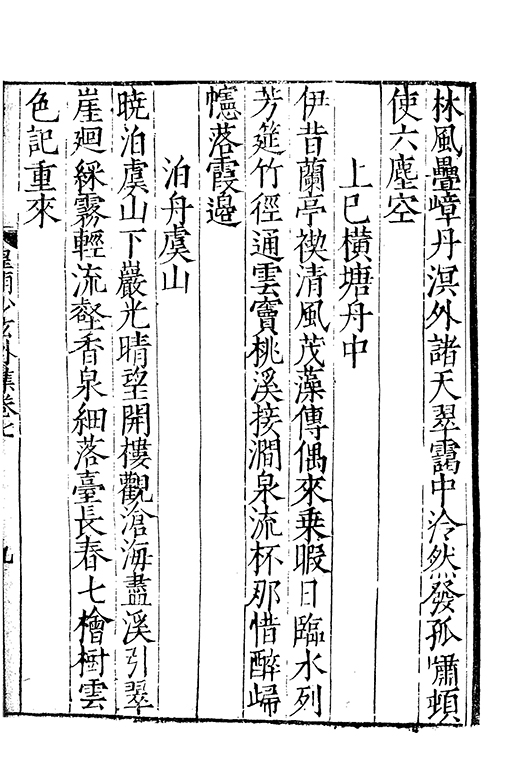 林風疊嶂丹溟外諸天翠靄中泠然發孤嘯頓
使六塵空
上巳橫塘舟中
伊昔蘭亭禊清風茂藻傳偶來乗暇日臨水列
芳筵竹徑通雲竇桃溪接澗泉流杯那惜醉歸
幰落霞邉
泊舟虞山
曉泊虞山下巖光晴望開樓觀滄海盡溪引翠
崖廻綵霧輕流壑香泉細落臺長春七檜樹雲
色記重來
皇甫少玄外集卷七
九